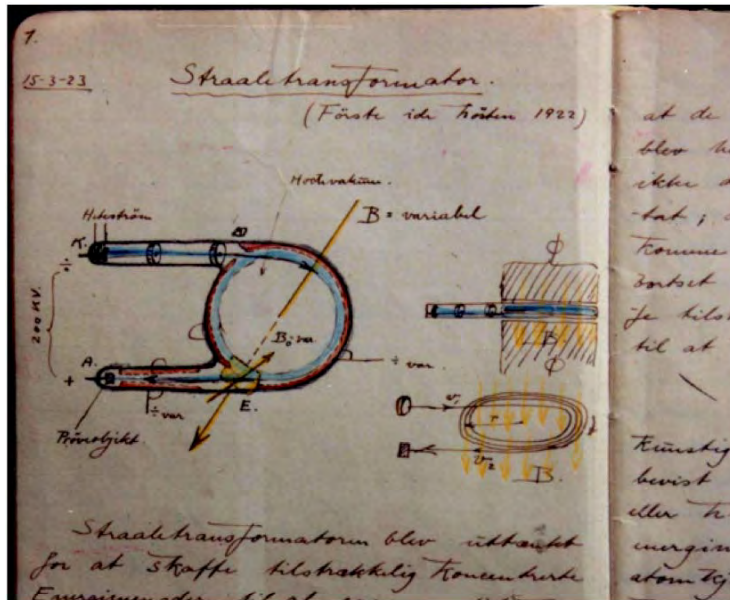 1.
15-3-23
Straaletransformator.
(Förste ide hösten 1922)
Hochvakuum.
B = variabel
Heteström
K.
÷
200 KV.
B₀ = var.
÷ var.
A.
+
E.
÷ var
Pröveobjekt
Φ
B.
Φ
v₁
r
v₂
B.
Straaletransformatoren blev uttænkt
for at skaffe tilstrækkelig koncentrerte
Energimengder til at
at de
blev
ikke
-tat;
komme
Bortset
til at
Kunstig
bevist
eller
energim
atomkj